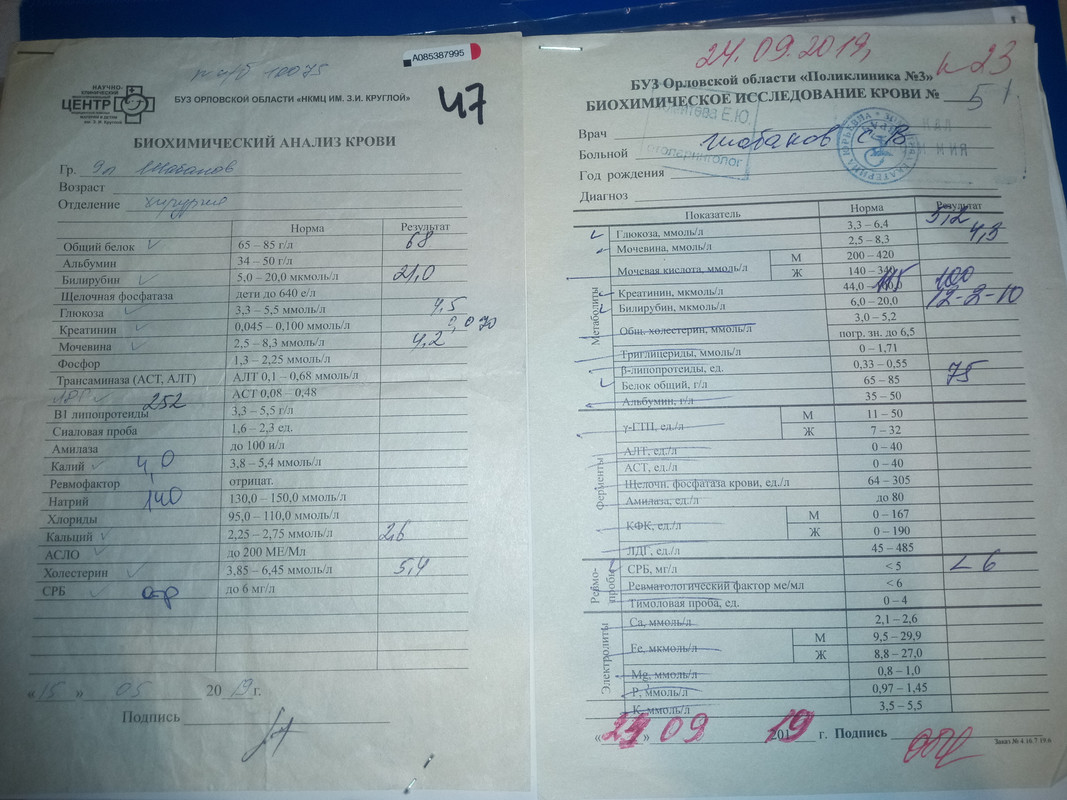 А085387995
10075
47
НАУЧНО-
КЛИНИЧЕСКИЙ
ЦЕНТР
БУЗ ОРЛОВСКОЙ ОБЛАСТИ «НКМЦ ИМ. З.И. КРУГЛОЙ»
БИОХИМИЧЕСКИЙ АНАЛИЗ КРОВИ
Гр. 9л
Возраст
Отделение хирургия
Норма Результат
Общий белок 65 – 85 г/л 68
Альбумин 34 – 50 г/л
Билирубин 5,0 – 20,0 мкмоль/л 21,0
Щелочная фосфатаза дети до 640 е/л
Глюкоза 3,3 – 5,5 ммоль/л 4,5
Креатинин 0,045 – 0,100 ммоль/л 0,070
Мочевина 2,5 – 8,3 ммоль/л 4,2
Фосфор 1,3 – 2,25 ммоль/л
Трансаминаза (АСТ, АЛТ) АЛТ 0,1 – 0,68 ммоль/л
АСТ 0,08 – 0,48
252
В1 липопротеиды 3,3 – 5,5 г/л
Сиаловая проба 1,6 – 2,3 ед.
Амилаза до 100 и/л
Калий 4,0 3,8 – 5,4 ммоль/л
Ревмофактор отрицат.
Натрий 140 130,0 – 150,0 ммоль/л
Хлориды 95,0 – 110,0 ммоль/л
Кальций 2,25 – 2,75 ммоль/л 2,6
АСЛО до 200 МЕ/Мл
Холестерин 3,85 – 6,45 ммоль/л 5,4
СРБ отр до 6 мг/л
« 15 » 05 2019 г.
Подпись
24.09.2019,
к 23
БУЗ Орловской области «Поликлиника №3»
БИОХИМИЧЕСКОЕ ИССЛЕДОВАНИЕ КРОВИ № 51
Врач
Больной
Год рождения
Диагноз
Показатель Норма Результат
Метаболиты
Глюкоза, ммоль/л 3,3 – 6,4 5,2
Мочевина, ммоль/л 2,5 – 8,3 4,3
Мочевая кислота, ммоль/л М 200 – 420
Ж 140 – 340
Креатинин, мкмоль/л 44,0 – 115 100
Билирубин, мкмоль/л 6,0 – 20,0 12-2-10
Общ. холестерин, ммоль/л 3,0 – 5,2
погр. зн. до 6,5
Триглицериды, ммоль/л 0 – 1,71
β-липопротеиды, ед. 0,33 – 0,55
Белок общий, г/л 65 – 85 75
Альбумин, г/л 35 – 50
Ферменты
γ-ГТП, ед./л М 11 – 50
Ж 7 – 32
АЛТ, ед./л 0 – 40
АСТ, ед./л 0 – 40
Щелочн. фосфатаза крови, ед./л 64 – 305
Амилаза, ед./л до 80
КФК, ед./л М 0 – 167
Ж 0 – 190
ЛДГ, ед./л 45 – 485
Ревмо-
пробы
СРБ, мг/л < 5 < 6
Ревматологический фактор ме/мл < 6
Тимоловая проба, ед. 0 – 4
Электролиты
Ca, ммоль/л 2,1 – 2,6
Fe, мкмоль/л М 9,5 – 29,9
Ж 8,8 – 27,0
Mg, ммоль/л 0,8 – 1,0
P, ммоль/л 0,97 – 1,45
K, ммоль/л 3,5 – 5,5
« 24 » 09 2019 г. Подпись
Заказ № 4.16.7.19.6